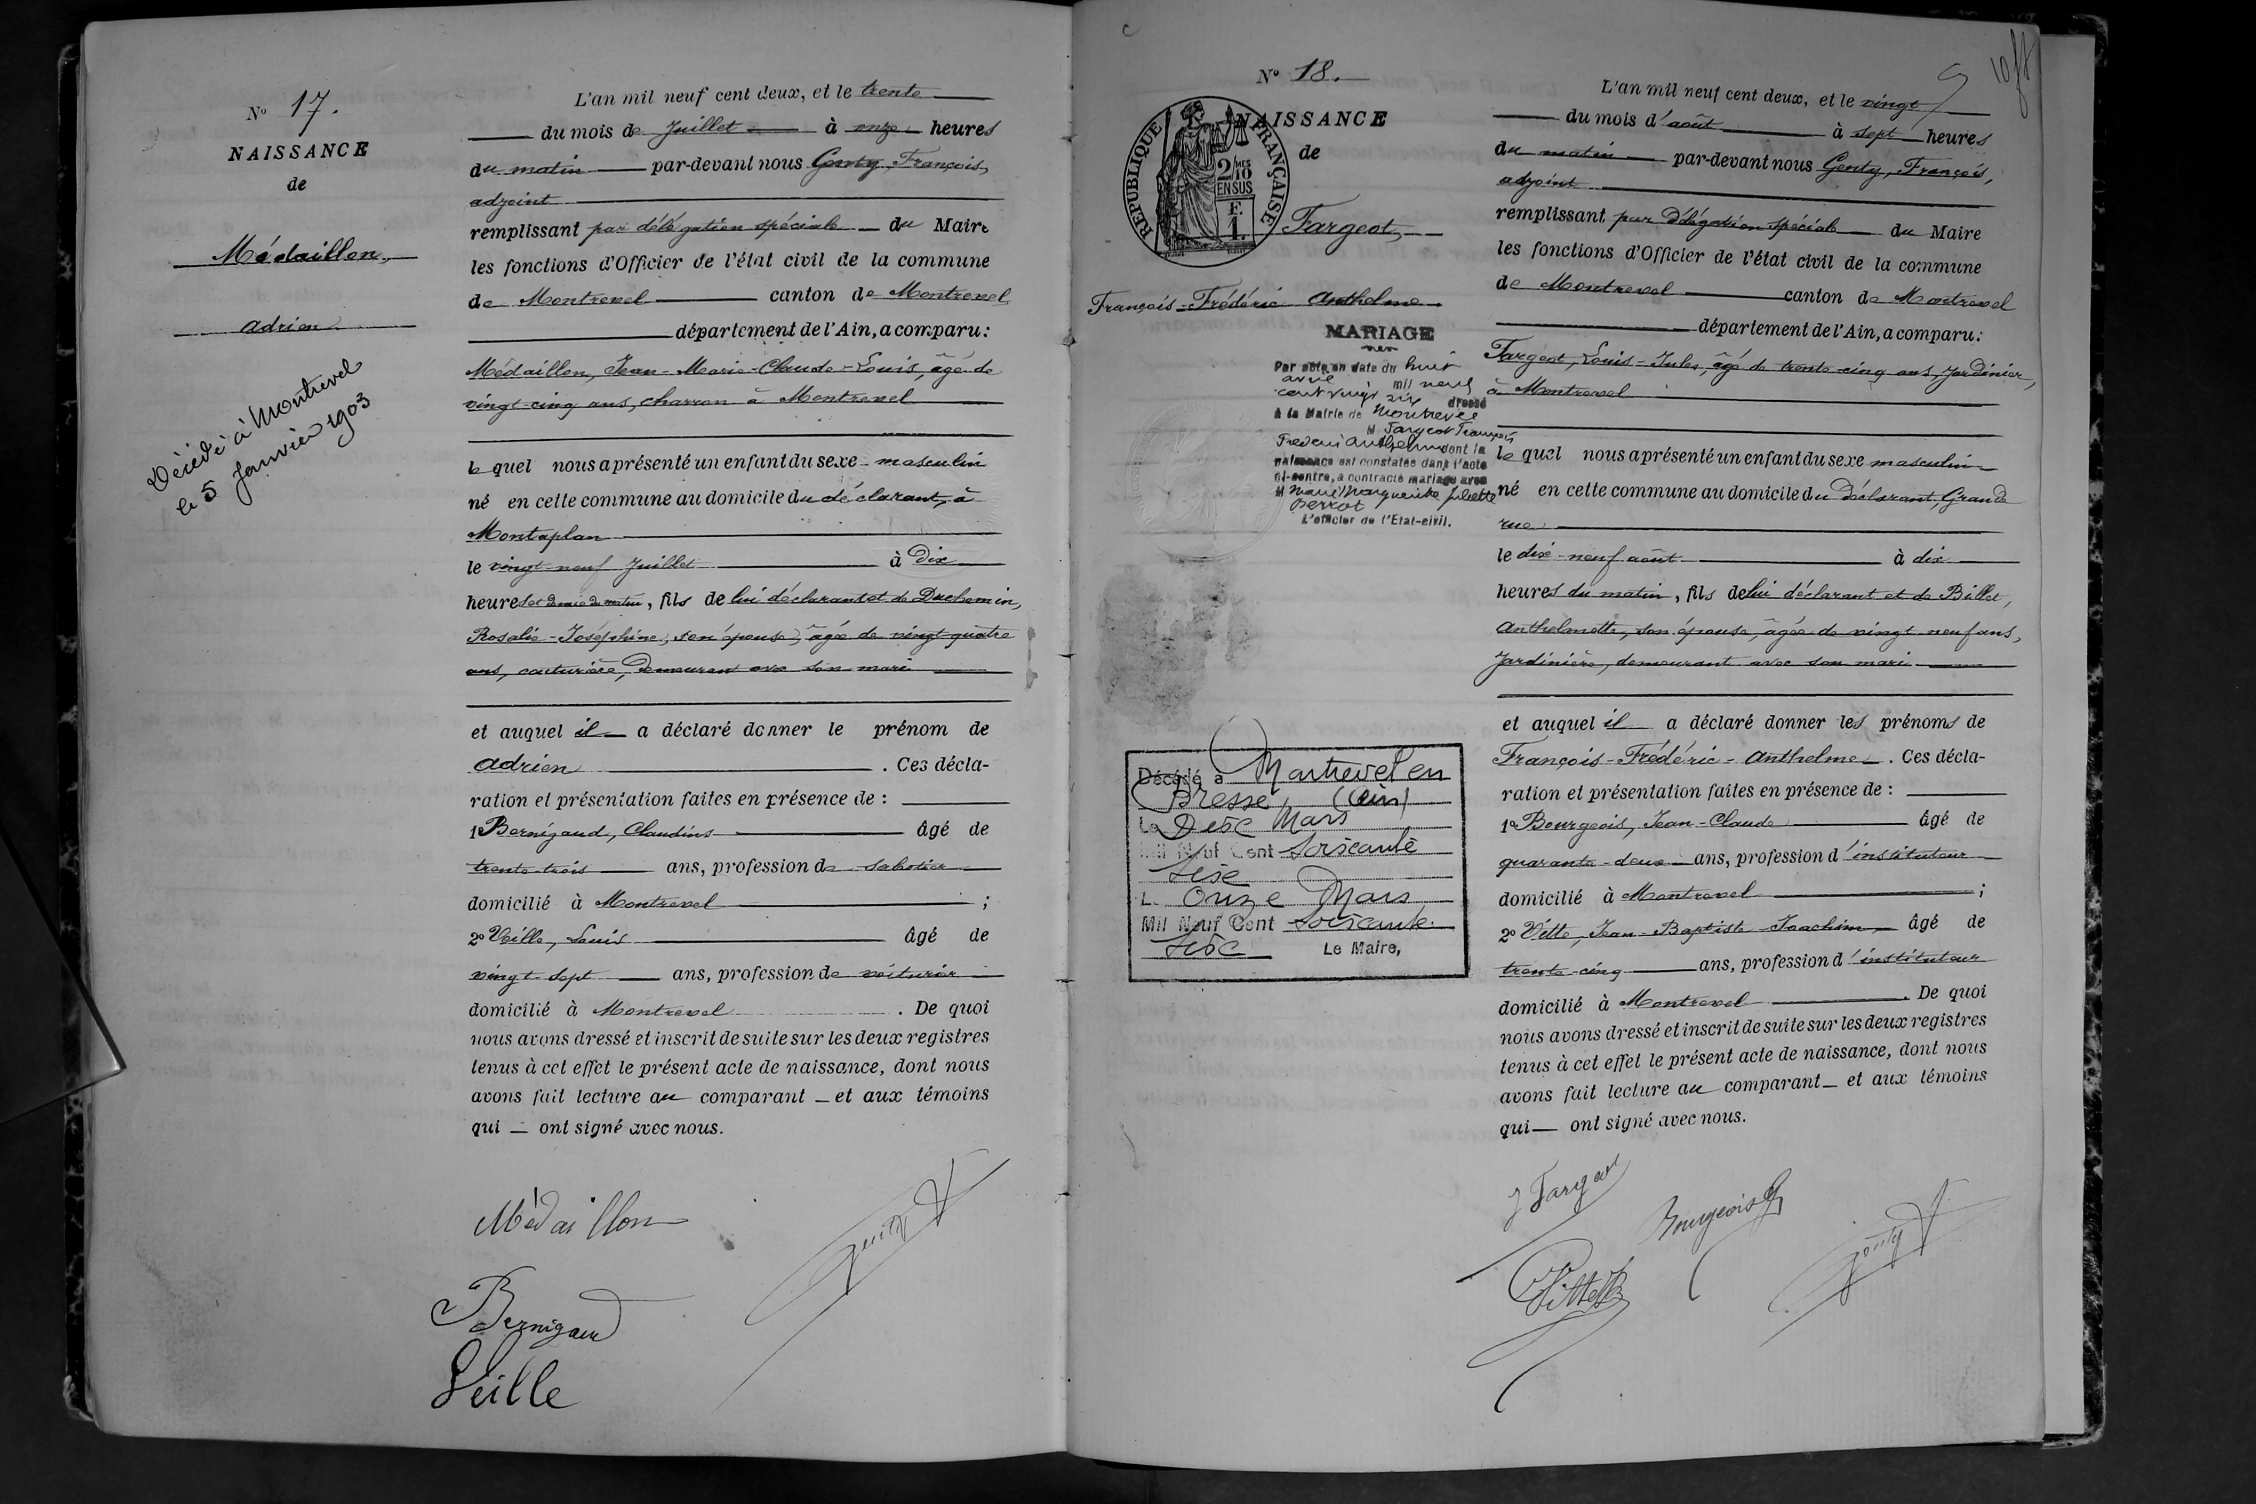 N° 17.
NAISSANCE
de
Médaillon,
Adrien
Décédé à Montrevel
le 5 Janvier 1903
L'an mil neuf cent deux, et le trente
du mois de Juillet à onze heures
du matin par-devant nous Genty, François,
adjoint
remplissant par délégation spéciale du Maire
les fonctions d'Officier de l'état civil de la commune
de Montrevel canton de Montrevel
département de l'Ain, a comparu:
Médaillon, Jean-Marie-Claude-Louis, âgé de
vingt-cinq ans, charron à Montrevel
lequel nous a présenté un enfant du sexe masculin
né en cette commune au domicile du déclarant, à
Montaplan
le vingt-neuf Juillet à Dix
heures et demie du matin, fils de lui déclarant et de Duchemin,
Rosalie-Joséphine, son épouse, âgée de vingt-quatre
ans, couturière, demeurant avec son mari
et auquel il a déclaré donner le prénom de
Adrien. Ces décla-
ration et présentation faites en présence de :
1° Bernigaud, Claudius âgé de
trente-trois ans, profession de sabotier
domicilié à Montrevel ;
2° Veille, Louis âgé de
vingt-sept ans, profession de voiturier
domicilié à Montrevel. De quoi
nous avons dressé et inscrit de suite sur les deux registres
tenus à cet effet le présent acte de naissance, dont nous
avons fait lecture au comparant et aux témoins
qui ont signé avec nous.
Médaillon
Genty
Bernigaud
Veille
N° 18.
NAISSANCE
de
REPUBLIQUE FRANÇAISE
2/10 MES
EN SUS
F.
1.
Fargeot,
François-Frédéric Anthelme
MARIAGE
Par acte en date du huit
avril mil neuf
cent vingt six dressé
à la Mairie de Montrevel
M Fargeot François
Frédéric Anthelme dont la
naissance est constatée dans l'acte
ci-contre, a contracté mariage avec
M Marie Marguerite Juliette
Perrot
L'officier de l'Etat-civil.
Décédé à Montrevel en
Bresse (Ain)
Le Dix Mars
Mil Neuf Cent Soixante
Six
L. Onze Mars
Mil Neuf Cent Soixante
Six Le Maire,
10
L'an mil neuf cent deux, et le vingt
du mois d'août à sept heures
du matin par-devant nous Genty, François,
adjoint
remplissant par délégation spéciale du Maire
les fonctions d'Officier de l'état civil de la commune
de Montrevel canton de Montrevel
département de l'Ain, a comparu:
Fargeot, Louis-Jules, âgé de trente-cinq ans, Jardinier,
à Montrevel
lequel nous a présenté un enfant du sexe masculin
né en cette commune au domicile du Déclarant, Grande
rue
le dix-neuf août à dix
heures du matin, fils de lui déclarant et de Billet,
Anthelmette, son épouse, âgée de vingt-neuf ans,
Jardinière, demeurant avec son mari
et auquel il a déclaré donner les prénoms de
François-Frédéric-Anthelme. Ces décla-
ration et présentation faites en présence de :
1° Bourgeois, Jean-Claude âgé de
quarante-deux ans, profession d'instituteur
domicilié à Montrevel ;
2° Vitte, Jean-Baptiste-Joachim âgé de
trente-cinq ans, profession d'instituteur
domicilié à Montrevel. De quoi
nous avons dressé et inscrit de suite sur les deux registres
tenus à cet effet le présent acte de naissance, dont nous
avons fait lecture au comparant et aux témoins
qui ont signé avec nous.
J Fargeot
Bourgeois
Vitte JB
Genty